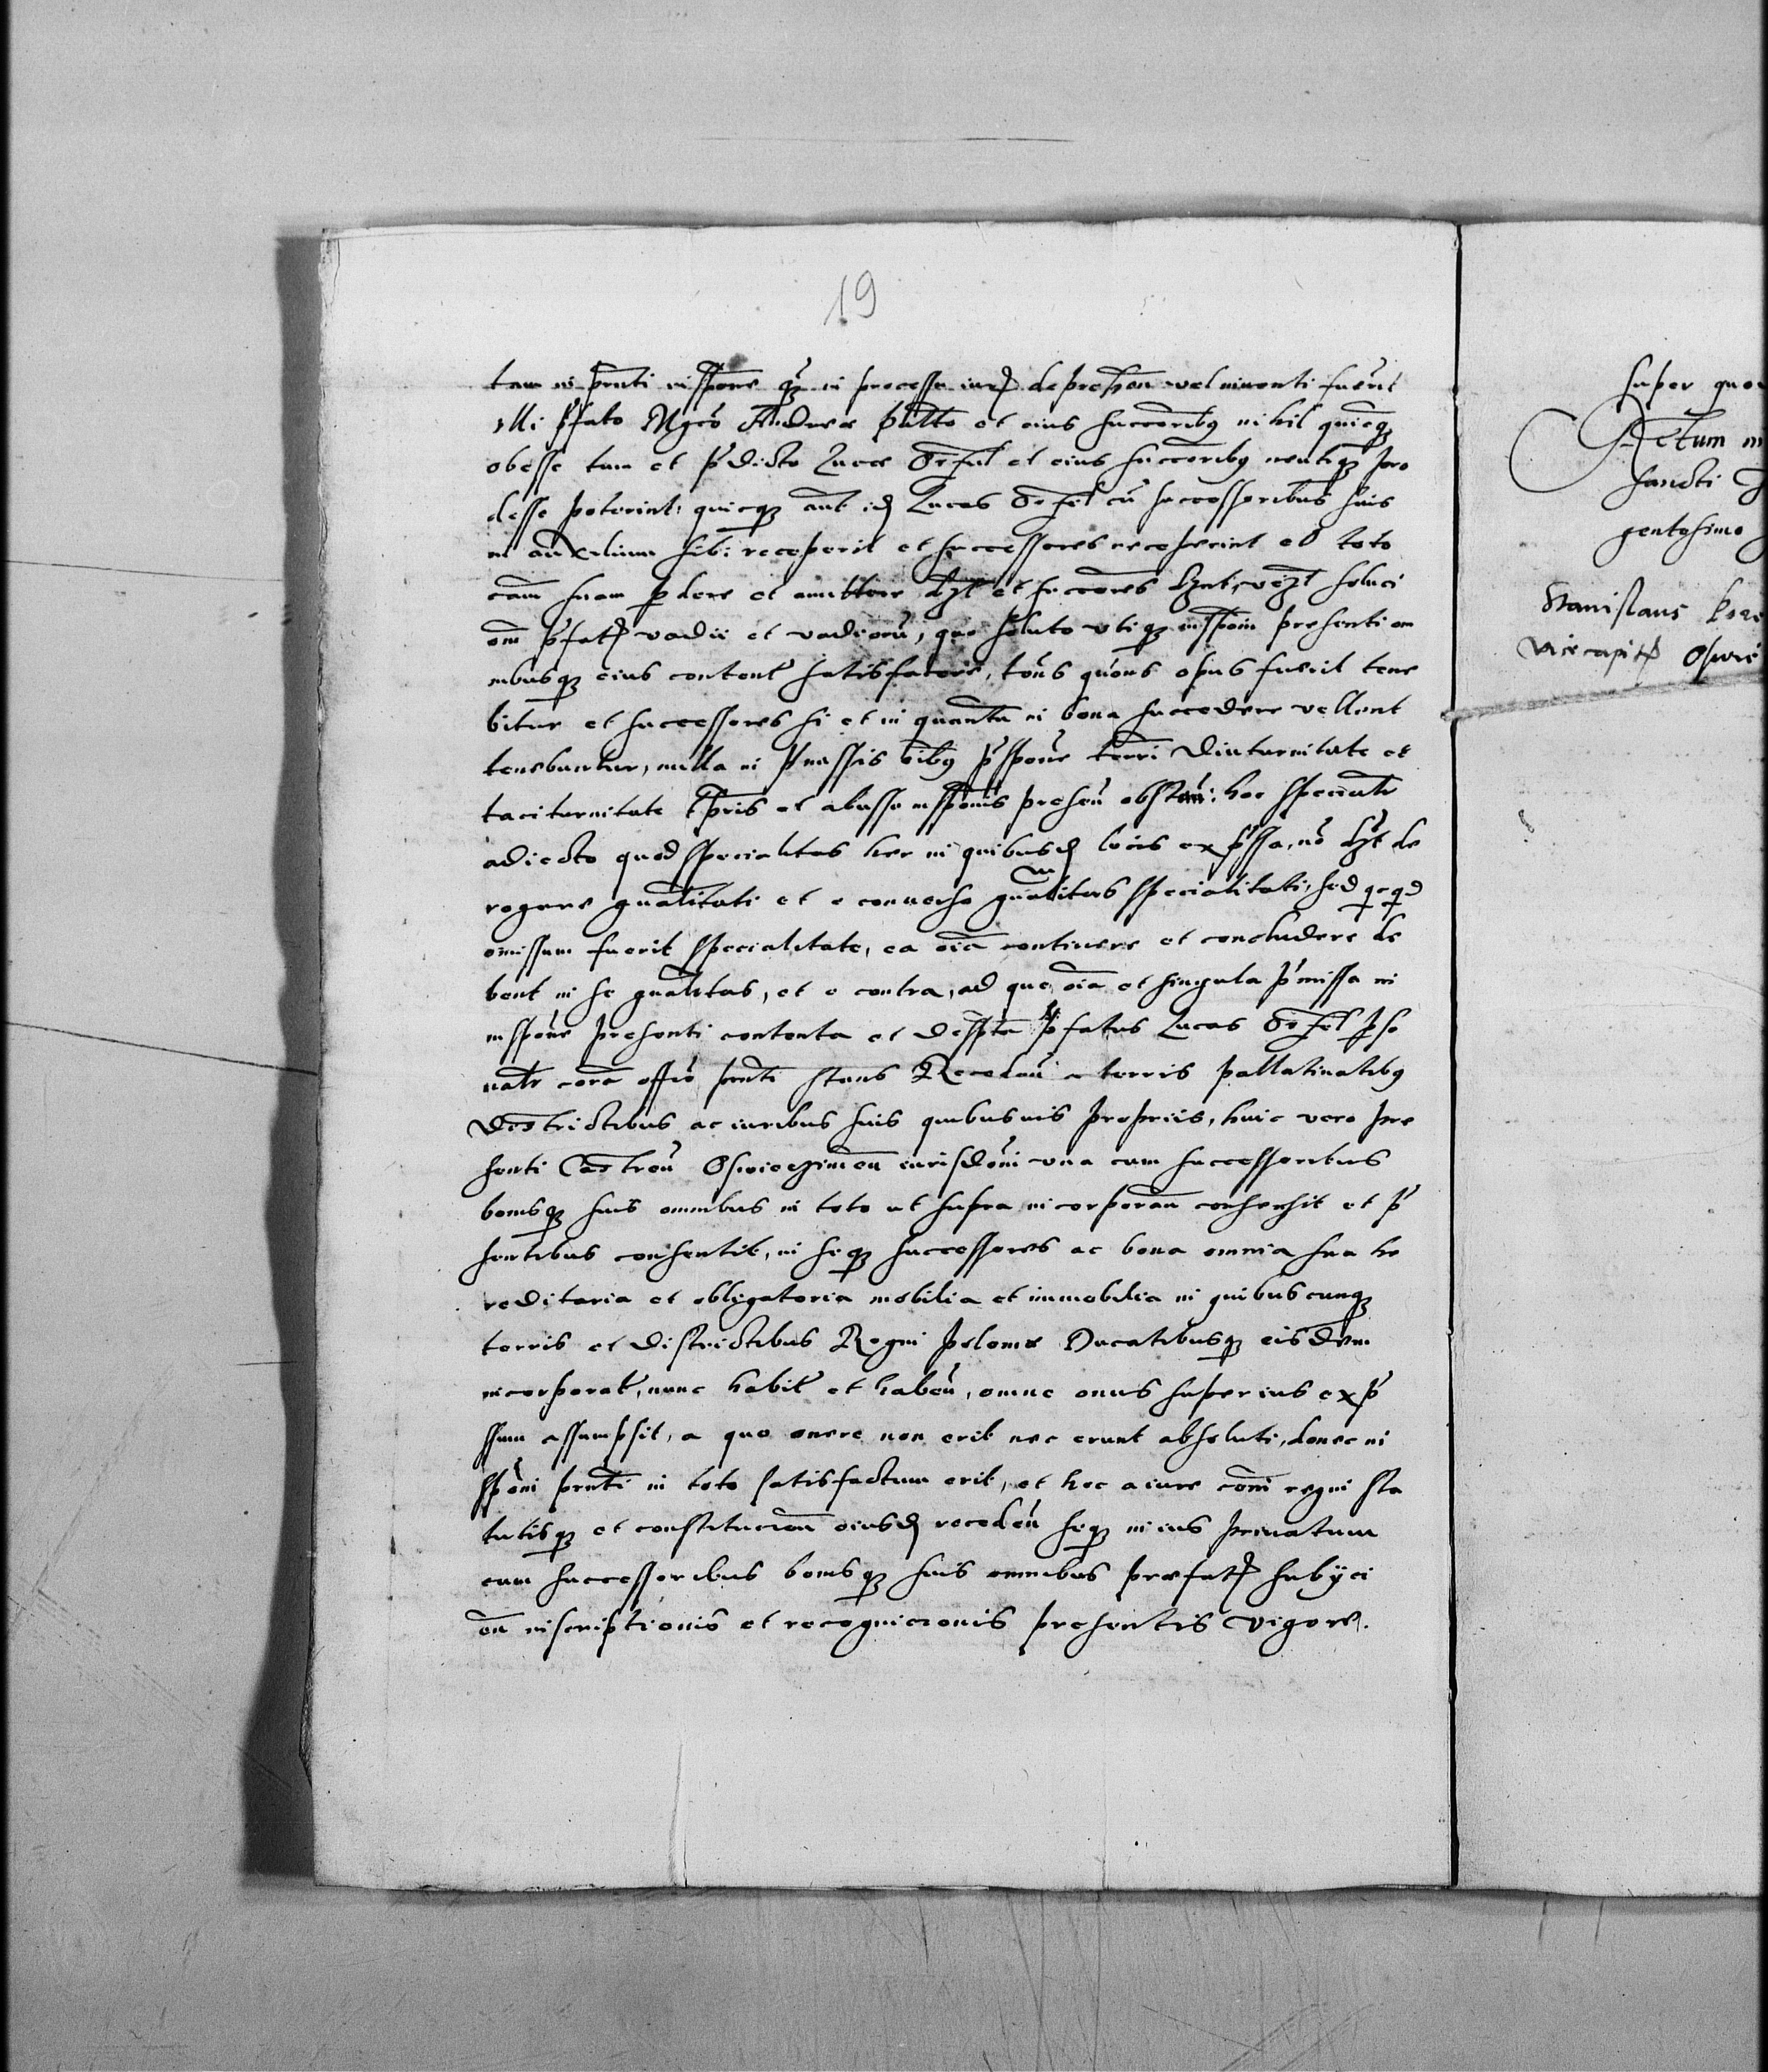 19
tam in pñti inspone qz in processu iur deprehen vel inuenti fuerit
illi pfato Mgco Andreæ pallto et eius succoribq nihil quicqz
obesse tum et pdicto Lucæ et eius succoribq neutiqz pro
desse poterint, quicqz aut id Lucas cu successoribus suis
in auxilium sibi receperit et successores receperint eo toto
cam suam pdere et amittere dzt et succores dznt, soluci
om pfat vadii et vadioru, quo soluto vtiqz insponi presenti om
nibusqz eius content satisfacere, tons quons opus fuerit tene
bitur et successores si et in quantu in bona succedere vellent
tenebuntur, nulla in pmissis oibq pspone terri diuturnitate et
taciturnitate tpris et alias insponis presen obstan: hoc specialr
adiecto quod specialitas hec in quibusd locis expssa, no dzt de
rogare gnalitati et e conuerso gnalitas specialitati, sed qcqd
omissum fuerit specialitate, ea oia continere et concludere de
bent in se gnalitas, et e contra, ad que oia et singula pmissa in
inspone presenti contenta et descpta pfatus Lucas pso
nalr cora offio pnti stans Receden a terris pallatinatibq
Districtibus ac iuribus suis quibusuis propriis, huic vero pre
senti Castren Oswieczimen iurisdoni vna cum successoribus
bonisqz suis omnibus in toto ut supra incorporan consensit et p
sentibus consentit, in seqz successores ac bona omnia sua he
reditaria et obligatoria mobilia et immobilia in quibuscunqz
terris et districtibus Regni poloniæ Ducatibusqz eisdem
incorporat, nunc habit et haben, omne onus superius exp
ssum assumpsit, a quo onere non erit nec erunt absoluti, donec in
sponi pnti in toto satisfactum erit, et hoc a iure comi regni sta
tutisqz et constitucion eiusd receden seqz in ius priuatum
cum successoribus bonisqz suis omnibus præfat subijci
en inscriptionis et recognicionis presentis vigore.
super quo
Actum in
sancti
gentesimo
Stanislaus
vicecapit Oswie